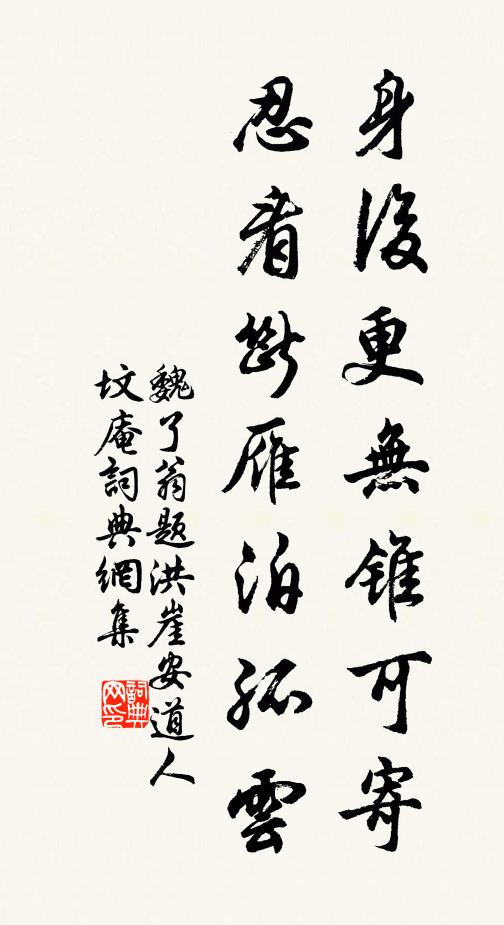 身後更無錐可寄
忍看斷雁泊孤雲
魏了翁題洪崖安道人
坟庵詞典網集
詞典网印